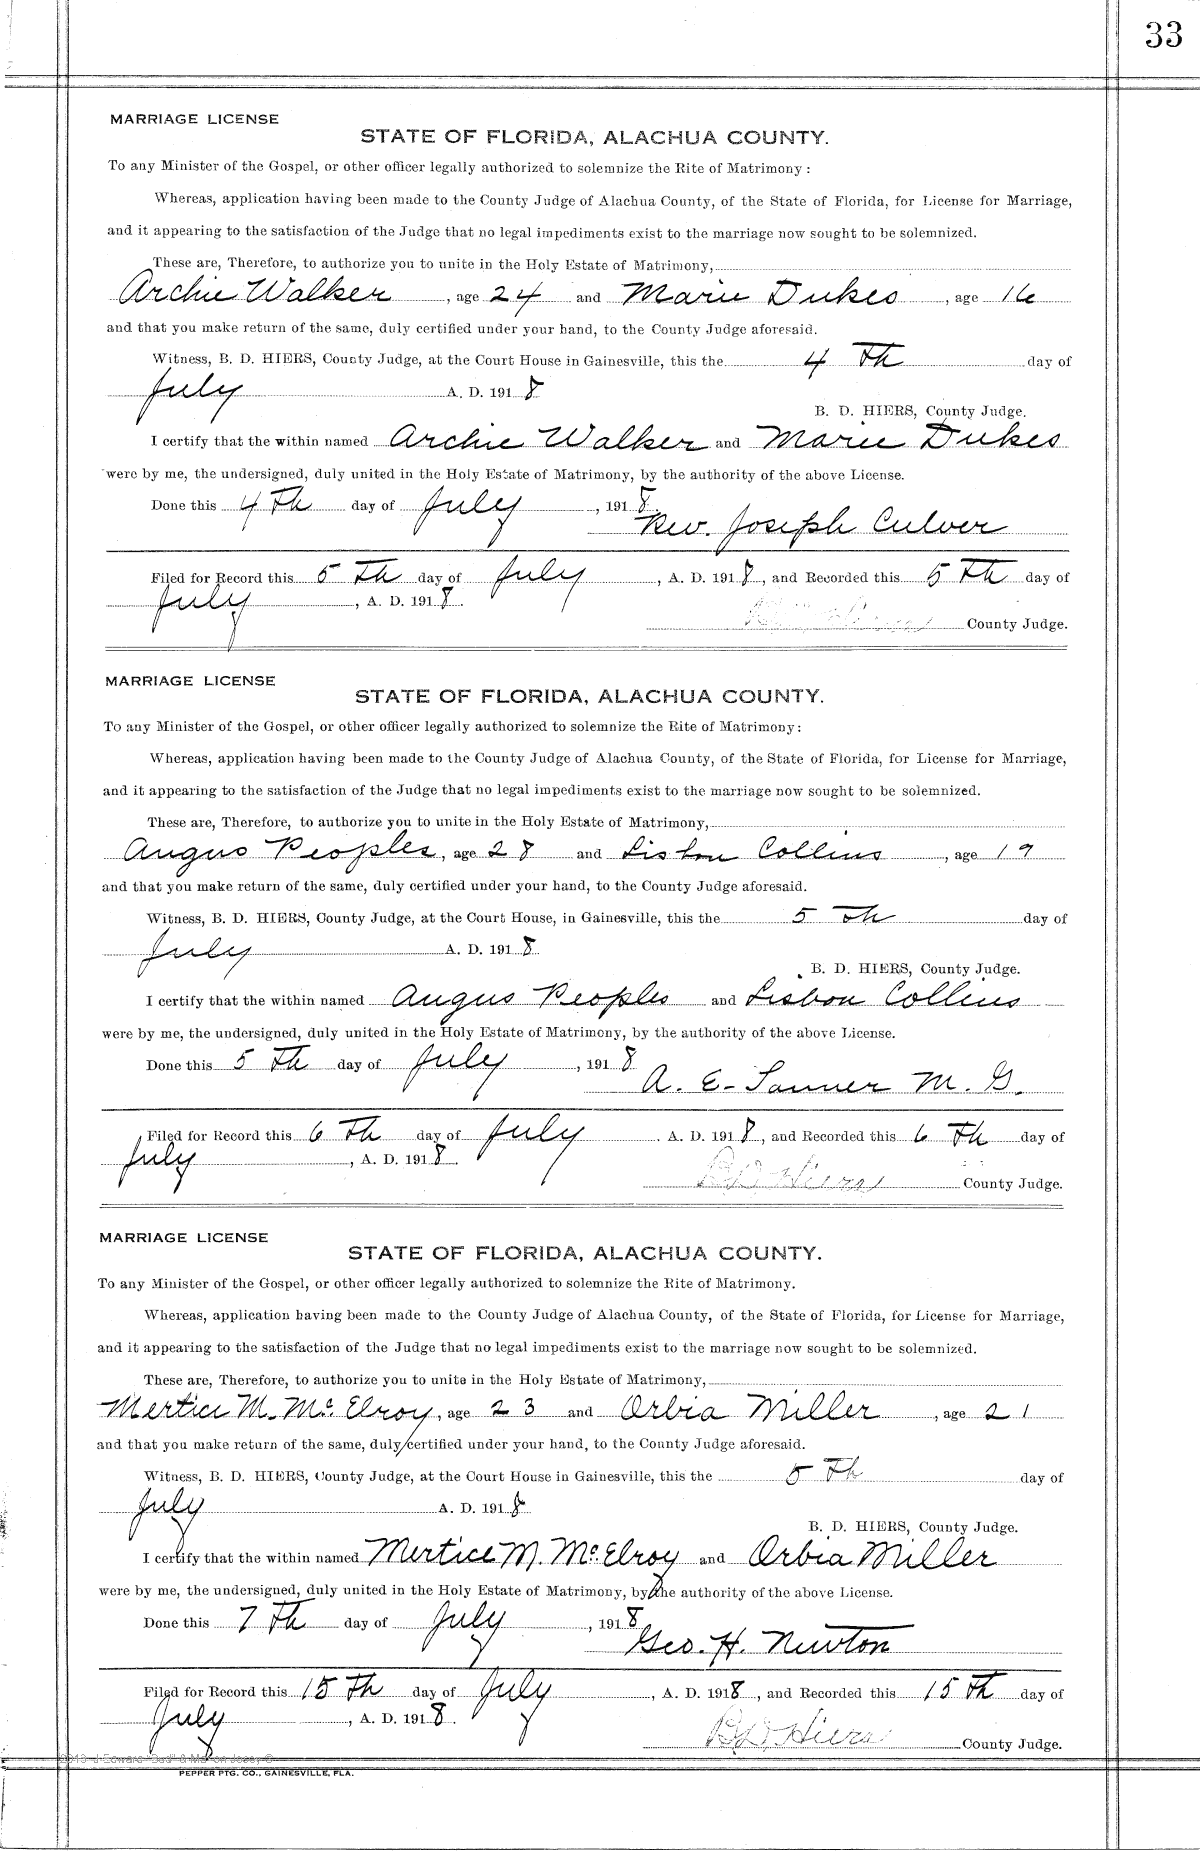 33
MARRIAGE LICENSE
STATE OF FLORIDA, ALACHUA COUNTY.
To any Minister of the Gospel, or other officer legally authorized to solemnize the Rite of Matrimony :
Whereas, application having been made to the County Judge of Alachua County, of the State of Florida, for License for Marriage,
and it appearing to the satisfaction of the Judge that no legal impediments exist to the marriage now sought to be solemnized.
These are, Therefore, to authorize you to unite in the Holy Estate of Matrimony,
Archie Walker , age 24 and Marie Dukes , age 16
and that you make return of the same, duly certified under your hand, to the County Judge aforesaid.
Witness, B. D. HIERS, County Judge, at the Court House in Gainesville, this the 4 Th day of
July A. D. 1918
B. D. HIERS, County Judge.
I certify that the within named Archie Walker and Marie Dukes
were by me, the undersigned, duly united in the Holy Estate of Matrimony, by the authority of the above License.
Done this 4 Th day of July , 1918
Rev. Joseph Culver
Filed for Record this 5 Th day of July , A. D. 1918 , and Recorded this 5 Th day of
July , A. D. 1918 .
B D Hiers County Judge.
MARRIAGE LICENSE
STATE OF FLORIDA, ALACHUA COUNTY.
To any Minister of the Gospel, or other officer legally authorized to solemnize the Rite of Matrimony:
Whereas, application having been made to the County Judge of Alachua County, of the State of Florida, for License for Marriage,
and it appearing to the satisfaction of the Judge that no legal impediments exist to the marriage now sought to be solemnized.
These are, Therefore, to authorize you to unite in the Holy Estate of Matrimony,
Angus Peoples , age 28 and Lisbon Collins , age 19
and that you make return of the same, duly certified under your hand, to the County Judge aforesaid.
Witness, B. D. HIERS, County Judge, at the Court House, in Gainesville, this the 5 Th day of
July A. D. 1918
B. D. HIERS, County Judge.
I certify that the within named Angus Peoples and Lisbon Collins
were by me, the undersigned, duly united in the Holy Estate of Matrimony, by the authority of the above License.
Done this 5 Th day of July , 1918
A. E. Tanner M. G.
Filed for Record this 6 Th day of July . A. D. 1918 , and Recorded this 6 Th day of
July , A. D. 1918 .
B D Hiers County Judge.
MARRIAGE LICENSE
STATE OF FLORIDA, ALACHUA COUNTY.
To any Minister of the Gospel, or other officer legally authorized to solemnize the Rite of Matrimony.
Whereas, application having been made to the County Judge of Alachua County, of the State of Florida, for License for Marriage,
and it appearing to the satisfaction of the Judge that no legal impediments exist to the marriage now sought to be solemnized.
These are, Therefore, to authorize you to unite in the Holy Estate of Matrimony,
Mertice M. McElroy , age 23 and Orbia Miller , age 21
and that you make return of the same, duly certified under your hand, to the County Judge aforesaid.
Witness, B. D. HIERS, County Judge, at the Court House in Gainesville, this the 5 Th day of
July A. D. 1918
B. D. HIERS, County Judge.
I certify that the within named Mertice M. McElroy and Orbia Miller
were by me, the undersigned, duly united in the Holy Estate of Matrimony, by the authority of the above License.
Done this 7 Th day of July , 1918
Geo. H. Newton
Filed for Record this 15 Th day of July , A. D. 1918 , and Recorded this 15 Th day of
July , A. D. 1918 .
B D Hiers County Judge.
PEPPER PTG. CO., GAINESVILLE, FLA.